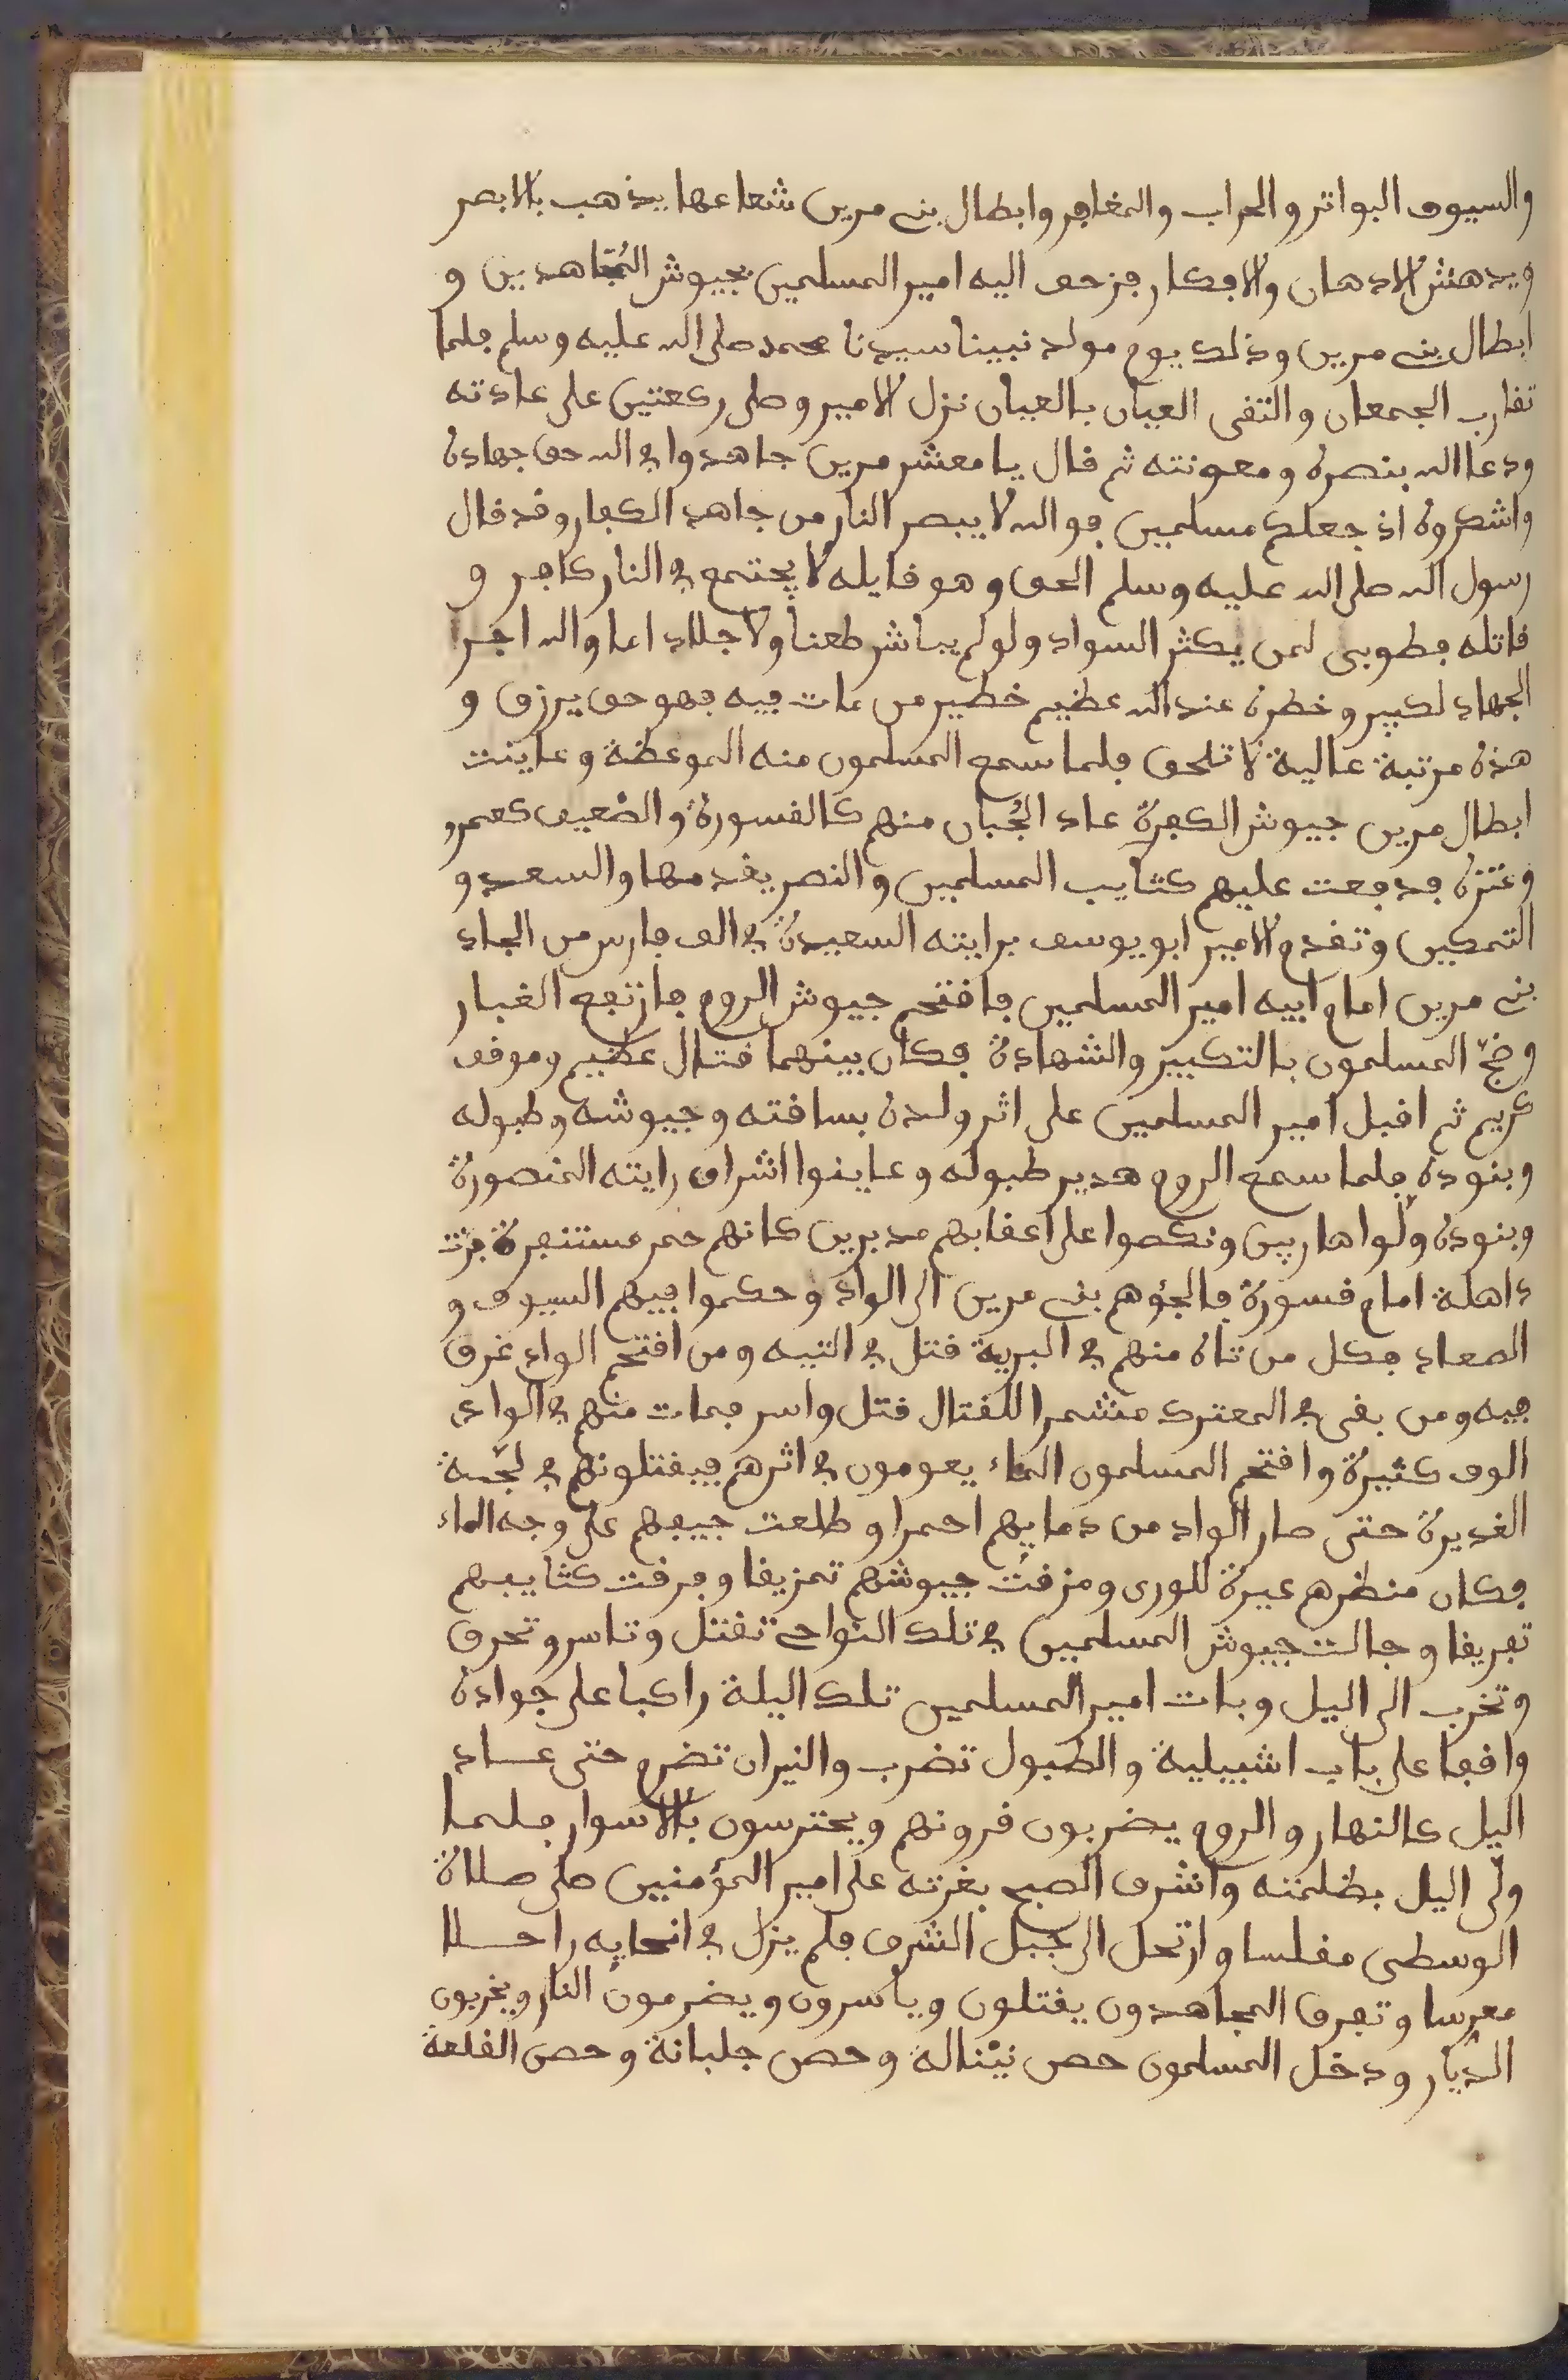 والسيوف البواتر والحراب والمغافر وابطال بنى مرين شعاعها يذهب بالابصر
ويدهش الادهان والافكار فزحف اليه امير المسلمين بجيوش المُجاهدين و
ابطال بنى مرين وذلك يوم مولد نبينا سيدنا محمد صلى الله عليه وسلم فلما
تقارب الجمعان والتقى العيان بالعيان نزل الامير وصلى ركعتين على عادته
ودعا الله بنصره ومعونته ثم قال يا معشر مرين جاهدوا في الله حق جهاده
واشكروه اذ جعلكم مسلمين فوالله لا يبصر النار من جاهد الكفار وقد قال
رسول الله صلى الله عليه وسلم الحق وهو قايله لا يجتمع في النار كافر و
قاتله فطوبى لمن يكثر السواد ولو لم يباشر طعنا ولا جلاد اما والله اجر
الجهاد لكبير وخطره عند الله عظيم خطير من مات فيه فهو حى يرزق و
هذه مرتبة عالية لا تلحق فلما سمع المسلمون منه الموعظة وعاينت
ابطال مرين جيوش الكفرة عاد الجُبان منهم كالقسورة والضعيف كعمرو
وعنتره فدفعت عليهم كتايب المسلمين والنصر يقدمها والسعد و
التمكين وتقدم الامير ابو يوسف برايته السعيدة في الف فارس من انجاد
بنى مرين امام ابيه امير المسلمين فاقتحم جيوش الروم فارتفع الغبار
وضجّ المسلمون بالتكبير والشهادة فكان بينهما قتال عظيم وموقف
كريم ثم اقبل امير المسلمين على اثر ولده بساقته وجيوشه وطبوله
وبنوده فلما سمع الروم هدير طبوله وعاينوا اشراق رايته المنصورة
وبنوده ولّوا هاربين ونكصوا على اعقابهم مدبرين كانهم حمر مستنفرة فرت
داهلة امام قسورة فالجؤهم بنى مرين الى الواد وحكموا فيهم السيوف و
الصعاد فكل من تاه منهم في البرية قتل في التيه ومن اقتحم الواد غرق
فيه ومن بقى في المعترك مشمرا للقتال قتل واسر فمات منهم في الوادى
الوف كثيرة واقتحم المسلمون الماء يعومون في اثرهم فيقتلونهم في لجّة
الغديرة حتى صار الواد من دمايهم احمرا وطلعت جيفهم على وجه الماء
فكان منظرهم عبرة للورى ومزقت جيوشهم تمزيقا وفرقت كتايبهم
تفريقا وجالت جيوش المسلمين في تلك النواحى تقتل وتاسر وتحرق
وتخرب الى اليل وبات امير المسلمين تلك اليلة راكبا على جواده
واقفا على باب اشبيلية والطبول تضرب والنيران تضرم حتى عاد
اليل كالنهار والروم يضربون قرونهم ويحترسون بالاسوار فلما
ولّى اليل بظلمته واشرف الصبح بغرته على امير المؤمنين صلى صلاة
الوسطى مغلسا وارتحل الى جبل الشرف فلم يزل في انحايه راحلا
معرسا وتفرق المجاهدون يقتلون وياسرون ويضرمون النار ويخربون
الديار ودخل المسلمون حصن وحصن جليانة وحصن القلعة